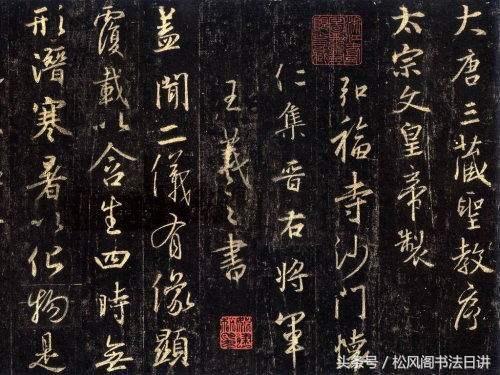 大唐三藏聖教序
太宗文皇帝製
弘福寺沙門懷
仁集晉右將軍
王羲之書
蓋聞二儀有像顯
覆載以含生四時無
形潛寒暑以化物是
头条号 / 松风阁书法日讲